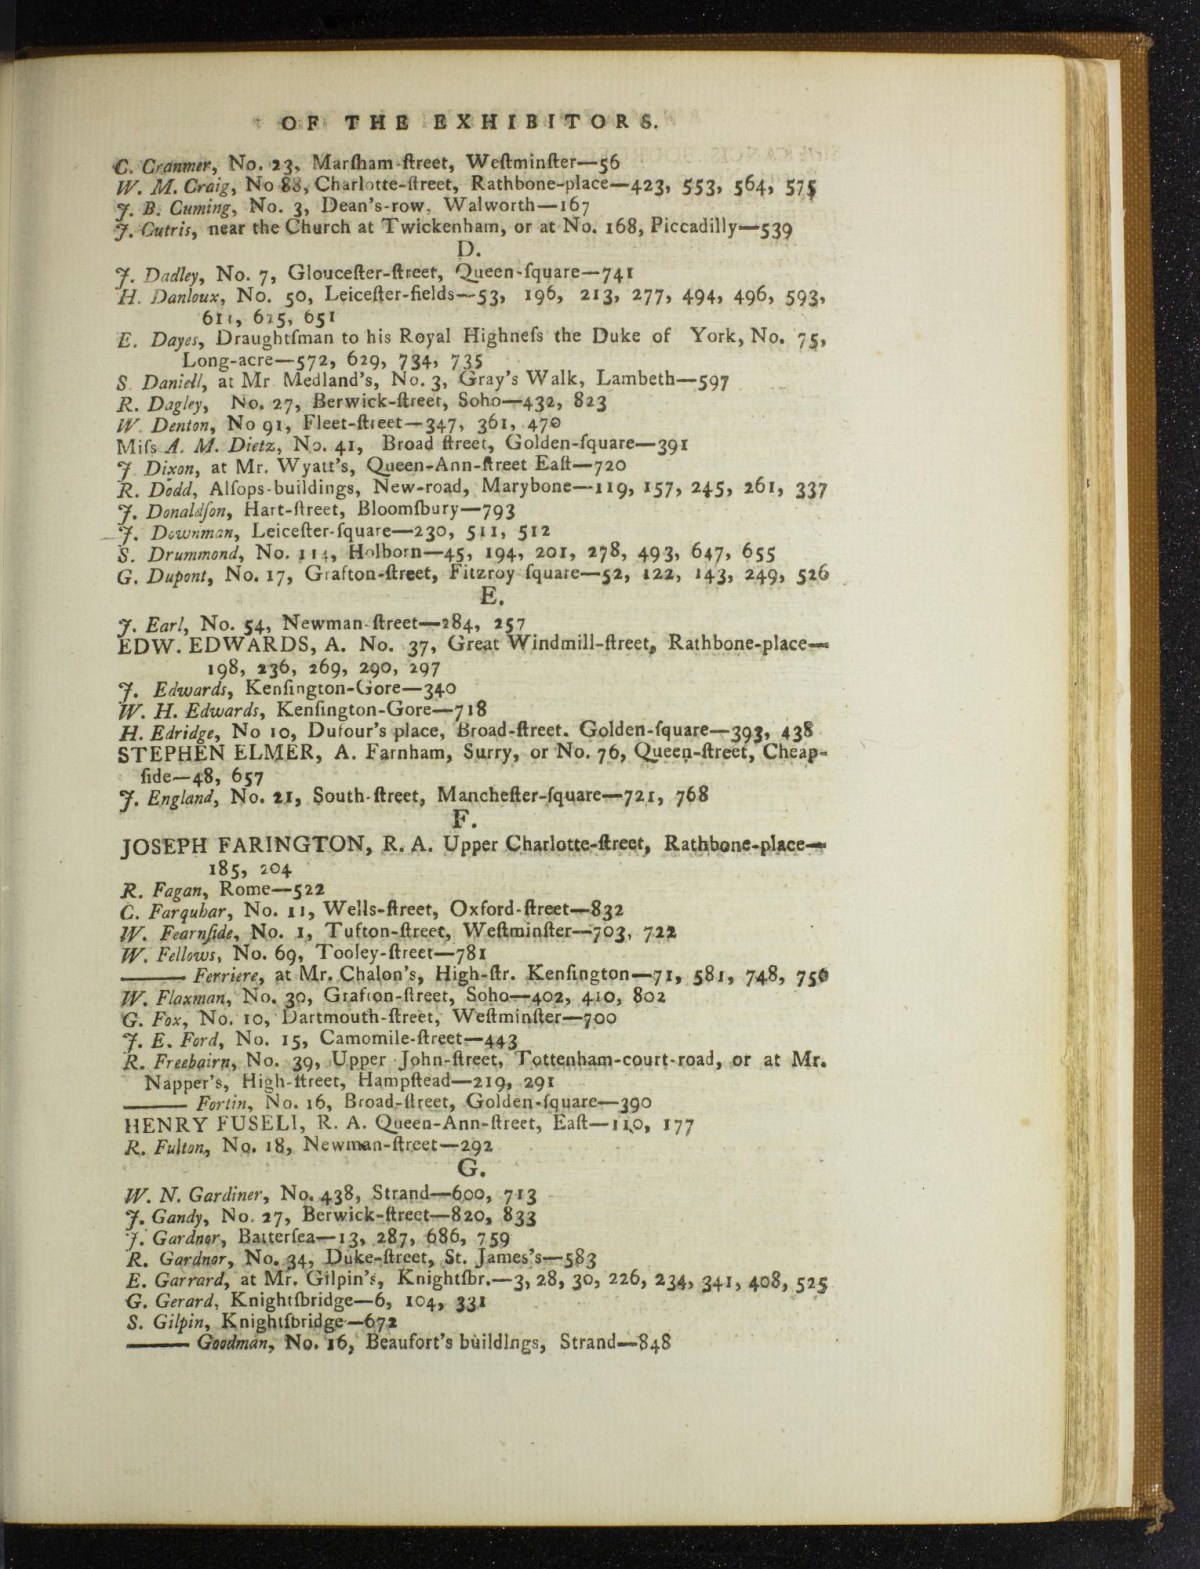 OF THE EXHIBITORS.
C. Cranmer, No. 23, Marſham-ſtreet, Weſtminſter—56
W. M. Craig, No 88, Charlotte-ſtreet, Rathbone-place—423, 553, 564, 575
J. B. Cuming, No. 3, Dean's-row, Walworth—167
J. Cutris, near the Church at Twickenham, or at No. 168, Piccadilly—539
D.
J. Dadley, No. 7, Glouceſter-ſtreet, Queen-ſquare—741
H. Danloux, No. 50, Leiceſter-fields—53, 196, 213, 277, 494, 496, 593,
611, 615, 651
E. Dayes, Draughtſman to his Royal Highneſs the Duke of York, No. 75,
Long-acre—572, 629, 734, 735
S. Daniell, at Mr Medland's, No. 3, Gray's Walk, Lambeth—597
R. Dagley, No. 27, Berwick-ſtreet, Soho—432, 823
W. Denton, No 91, Fleet-ſtreet—347, 361, 470
Miſs A. M. Dietz, No. 41, Broad ſtreet, Golden-ſquare—391
J Dixon, at Mr. Wyatt's, Queen-Ann-ſtreet Eaſt—720
R. Dodd, Alſops-buildings, New-road, Marybone—119, 157, 245, 261, 337
J. Donaldſon, Hart-ſtreet, Bloomſbury—793
J. Downman, Leiceſter-ſquare—230, 511, 512
S. Drummond, No. 114, Holborn—45, 194, 201, 278, 493, 647, 655
G. Dupont, No. 17, Grafton-ſtreet, Fitzroy ſquare—52, 122, 143, 249, 526
E.
J. Earl, No. 54, Newman-ſtreet—284, 257
EDW. EDWARDS, A. No. 37, Great Windmill-ſtreet, Rathbone-place—
198, 236, 269, 290, 297
J. Edwards, Kenſington-Gore—340
W. H. Edwards, Kenſington-Gore—718
H. Edridge, No 10, Dufour's place, Broad-ſtreet. Golden-ſquare—393, 438
STEPHEN ELMER, A. Farnham, Surry, or No. 76, Queen-ſtreet, Cheap-
ſide—48, 657
J. England, No. 21, South-ſtreet, Mancheſter-ſquare—721, 768
F.
JOSEPH FARINGTON, R. A. Upper Charlotte-ſtreet, Rathbone-place—
185, 204
R. Fagan, Rome—522
C. Farquhar, No. 11, Wells-ſtreet, Oxford-ſtreet—832
W. Fearnſide, No. 1, Tufton-ſtreet, Weſtminſter—703, 722
W. Fellows, No. 69, Tooley-ſtreet—781
——— Ferriere, at Mr. Chalon's, High-ſtr. Kenſington—71, 581, 748, 750
W. Flaxman, No. 30, Grafton-ſtreet, Soho—402, 410, 802
G. Fox, No. 10, Dartmouth-ſtreet, Weſtminſter—700
J. E. Ford, No. 15, Camomile-ſtreet—443
R. Freebairn, No. 39, Upper John-ſtreet, Tottenham-court-road, or at Mr.
Napper's, High-ſtreet, Hampſtead—219, 291
——— Fortin, No. 16, Broad-ſtreet, Golden-ſquare—390
HENRY FUSELI, R. A. Queen-Ann-ſtreet, Eaſt—110, 177
R. Fulton, No. 18, Newman-ſtreet—292
G.
W. N. Gardiner, No. 438, Strand—600, 713
J. Gandy, No. 27, Berwick-ſtreet—820, 833
J. Gardnor, Batterſea—13, 287, 686, 759
R. Gardnor, No. 34, Duke-ſtreet, St. James's—583
E. Garrard, at Mr. Gilpin's, Knightſbr.—3, 28, 30, 226, 234, 341, 408, 525
G. Gerard, Knightſbridge—6, 104, 331
S. Gilpin, Knightſbridge—672
——— Goodman, No. 16, Beaufort's buildings, Strand—848